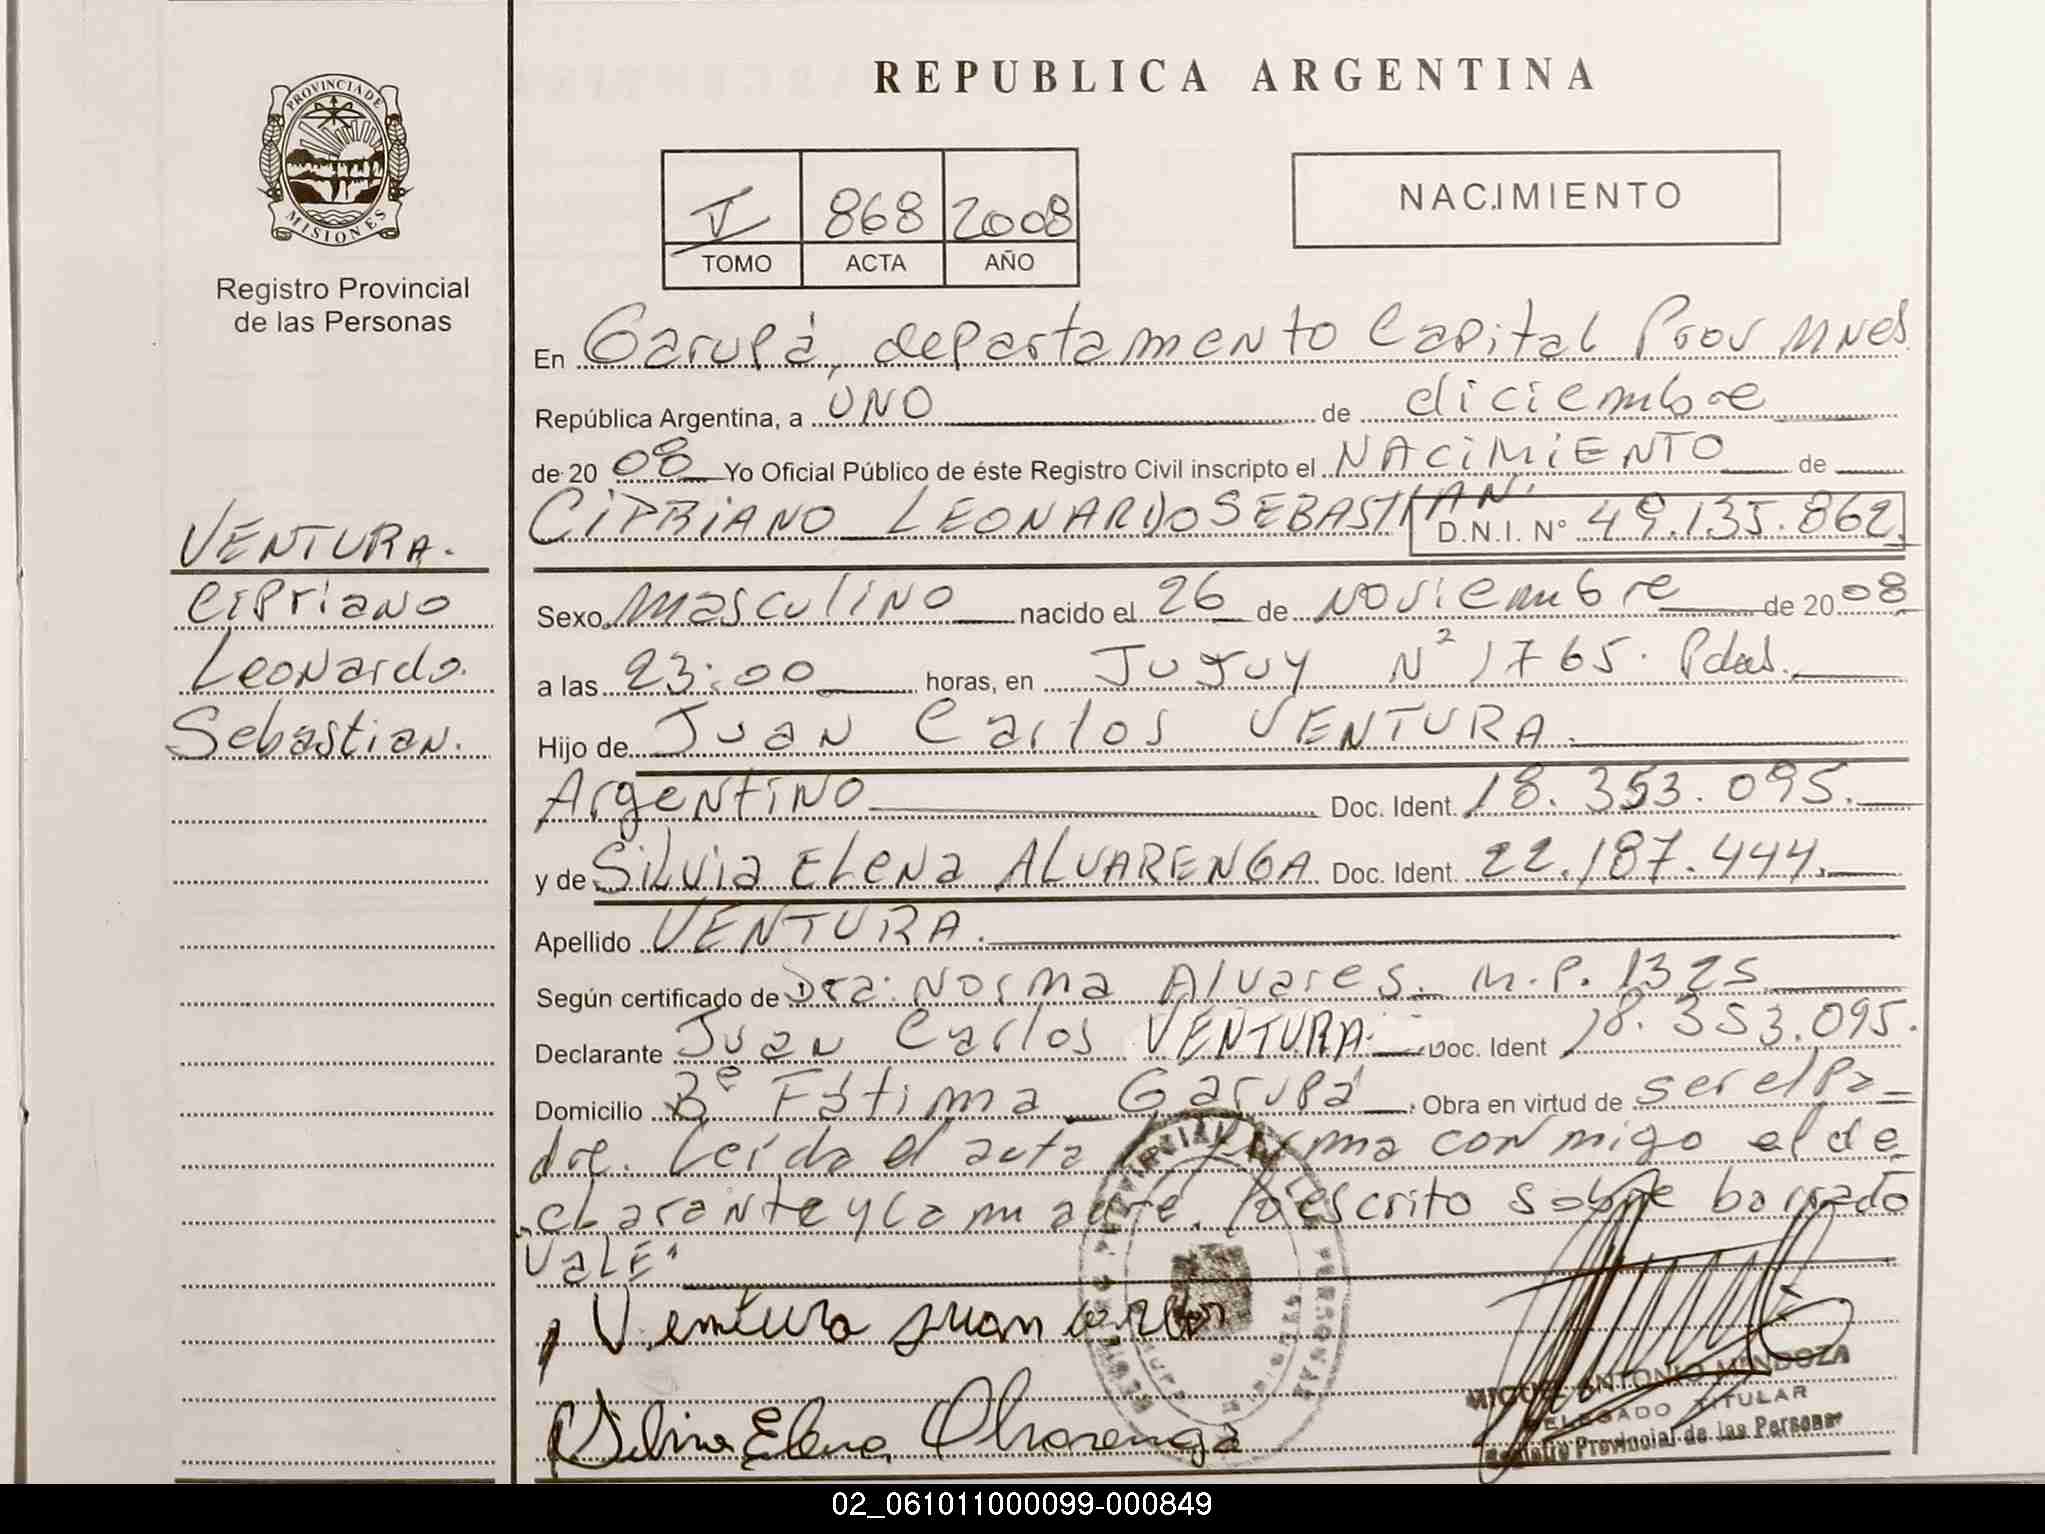 REPUBLICA ARGENTINA
PROVINCIA DE
MISIONES
Registro Provincial
de las Personas
I 868 2008
TOMO ACTA AÑO
NACIMIENTO
En Garupá, departamento Capital Prov Mnes
República Argentina, a UNO de diciembre
de 20 08 Yo Oficial Público de éste Registro Civil inscripto el NACIMIENTO de
CIPRIANO LEONARDO SEBASTIAN. D.N.I. N° 49.135.862.
VENTURA.
Cipriano
Leonardo.
Sebastian.
Sexo masculino nacido el 26 de noviembre de 20 08
a las 23:00 horas, en Jujuy N° 1765. Pdas.
Hijo de Juan Carlos VENTURA.
Argentino Doc. Ident. 18.353.095.
y de Silvia Elena ALVARENGA Doc. Ident. 22.187.444.
Apellido VENTURA.
Según certificado de Dra: Norma Alvares. M.P. 1325
Declarante Juan Carlos VENTURA. Doc. Ident 18.353.095.
Domicilio B° Fátima Garupá. Obra en virtud de ser el pa-
dre. Leída el acta firma conmigo el de-
clarante y la madre. Lo escrito sobre borrado
VALE"
Ventura Juan Carlos
Silvia Elena Alvarenga
MIGUEL ANTONIO MENDOZA
DELEGADO TITULAR
Registro Provincial de las Personas
02_061011000099-000849